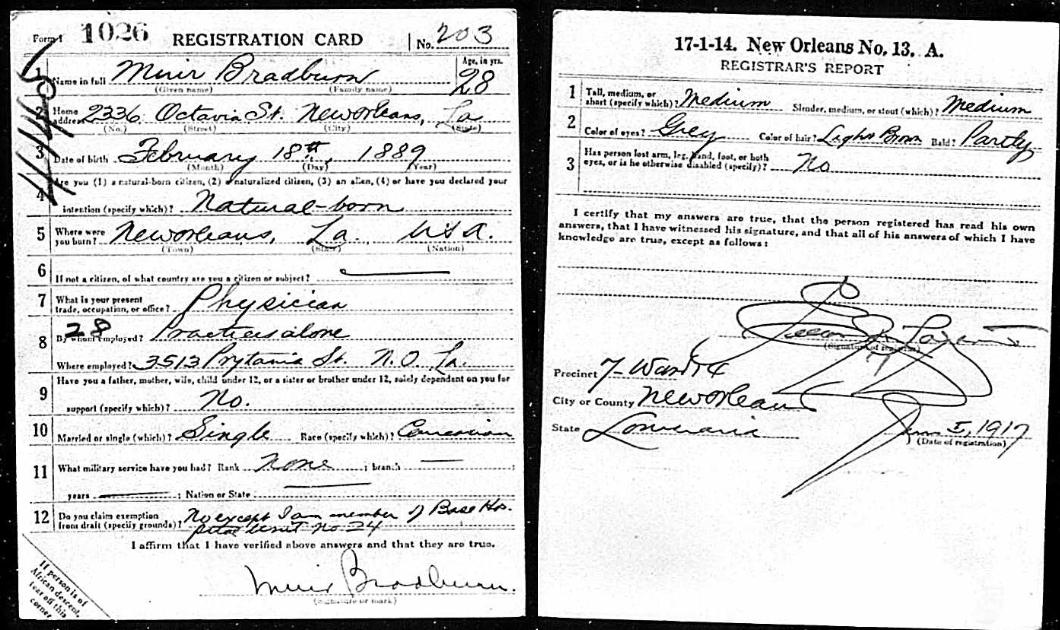 Form 1 1026 REGISTRATION CARD No. 203
Name in full Muir Bradburn Age, in yrs. 28
(Given name) (Family name)
2 Home address 2336 Octavia St. New Orleans, La
(No.) (Street) (City) (State)
3 Date of birth February 18th, 1889
(Month) (Day) (Year)
4 Are you (1) a natural-born citizen, (2) a naturalized citizen, (3) an alien, (4) or have you declared your
intention (specify which)? Natural-born
5 Where were you born? New Orleans, La. USA.
(Town) (State) (Nation)
6 If not a citizen, of what country are you a citizen or subject?
7 What is your present trade, occupation, or office? Physician
28
8 By whom employed? Practices alone
Where employed? 3513 Prytania St. N.O. La.
9 Have you a father, mother, wife, child under 12, or a sister or brother under 12, solely dependent on you for
support (specify which)? No.
10 Married or single (which)? Single Race (specify which)? Caucasian
11 What military service have you had? Rank None ; branch — ;
years ; Nation or State
12 Do you claim exemption from draft (specify grounds)? No except I am member of Base Hos-
pital Unit No. 24
I affirm that I have verified above answers and that they are true.
Muir Bradburn.
(Signature or mark)
If person is of
African descent,
tear off this
corner
17-1-14. New Orleans No. 13. A.
REGISTRAR'S REPORT
1 Tall, medium, or short (specify which)? Medium Slender, medium, or stout (which)? Medium
2 Color of eyes? Grey Color of hair? Light Brown Bald? Partly
3 Has person lost arm, leg, hand, foot, or both
eyes, or is he otherwise disabled (specify)? No
I certify that my answers are true, that the person registered has read his own
answers, that I have witnessed his signature, and that all of his answers of which I have
knowledge are true, except as follows:
(Signature of registrar)
Precinct 7-Ward 14
City or County New Orleans
State Louisiana June 5, 1917
(Date of registration)